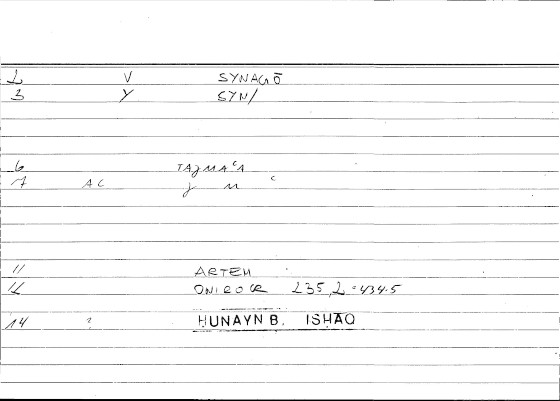 2 V SYNAGŌ
3 Y SYN/
6 TAJMAʿA
7 AC J M ʿ
11 ARTEM
12 ONIROCR 235,2=434.5
14 2 HUNAYN B. ISHAQ